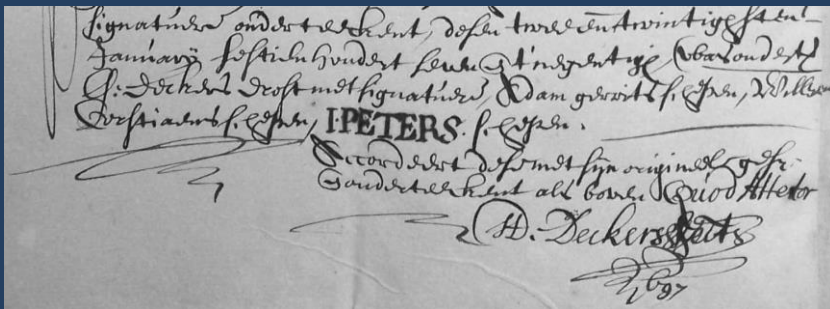 signature onderteekent, desen twee en twintichsten
January sestien hondert seven t'negentigh, was ondert
Deckers drost met signature, Adam gerrits schepen, Willem
Corstiaens schepen, I·PETERS. schepen.
Accordeert dese met sijn origineel
onderteekent als boven Quod Attestor
H. Deckers
1697